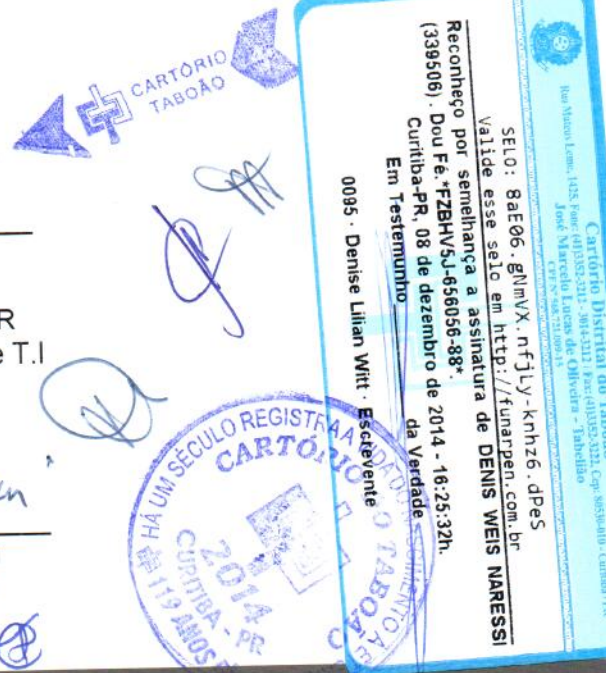 CARTÓRIO
TABOÃO
Cartório Distrital do
Rua Mateus Leme, 1425, Fone: (41)3352-3212 - 3014-3212 / Fax: (41)3352-3222, Cep: 80530-010 - Curitiba
José Marcelo Lucas de Oliveira - Tabelião
SELO: 8aE06.gNmVX.nfjLy-knhz6.dPeS
Valide esse selo em http://funarpen.com.br
Reconheço por semelhança a assinatura de DENIS WEIS NARESSI
(339506). Dou Fé.*FZBHV5J-656056-88*.
Curitiba-PR, 08 de dezembro de 2014 - 16:25:32h.
Em Testemunho da Verdade
0095 - Denise Lilian Witt - Escrevente
R
e T.I
HÁ UM SÉCULO REGISTRA A
CARTÓRIO
DO TABOÃO
2014
CURITIBA - PR
119 ANOS